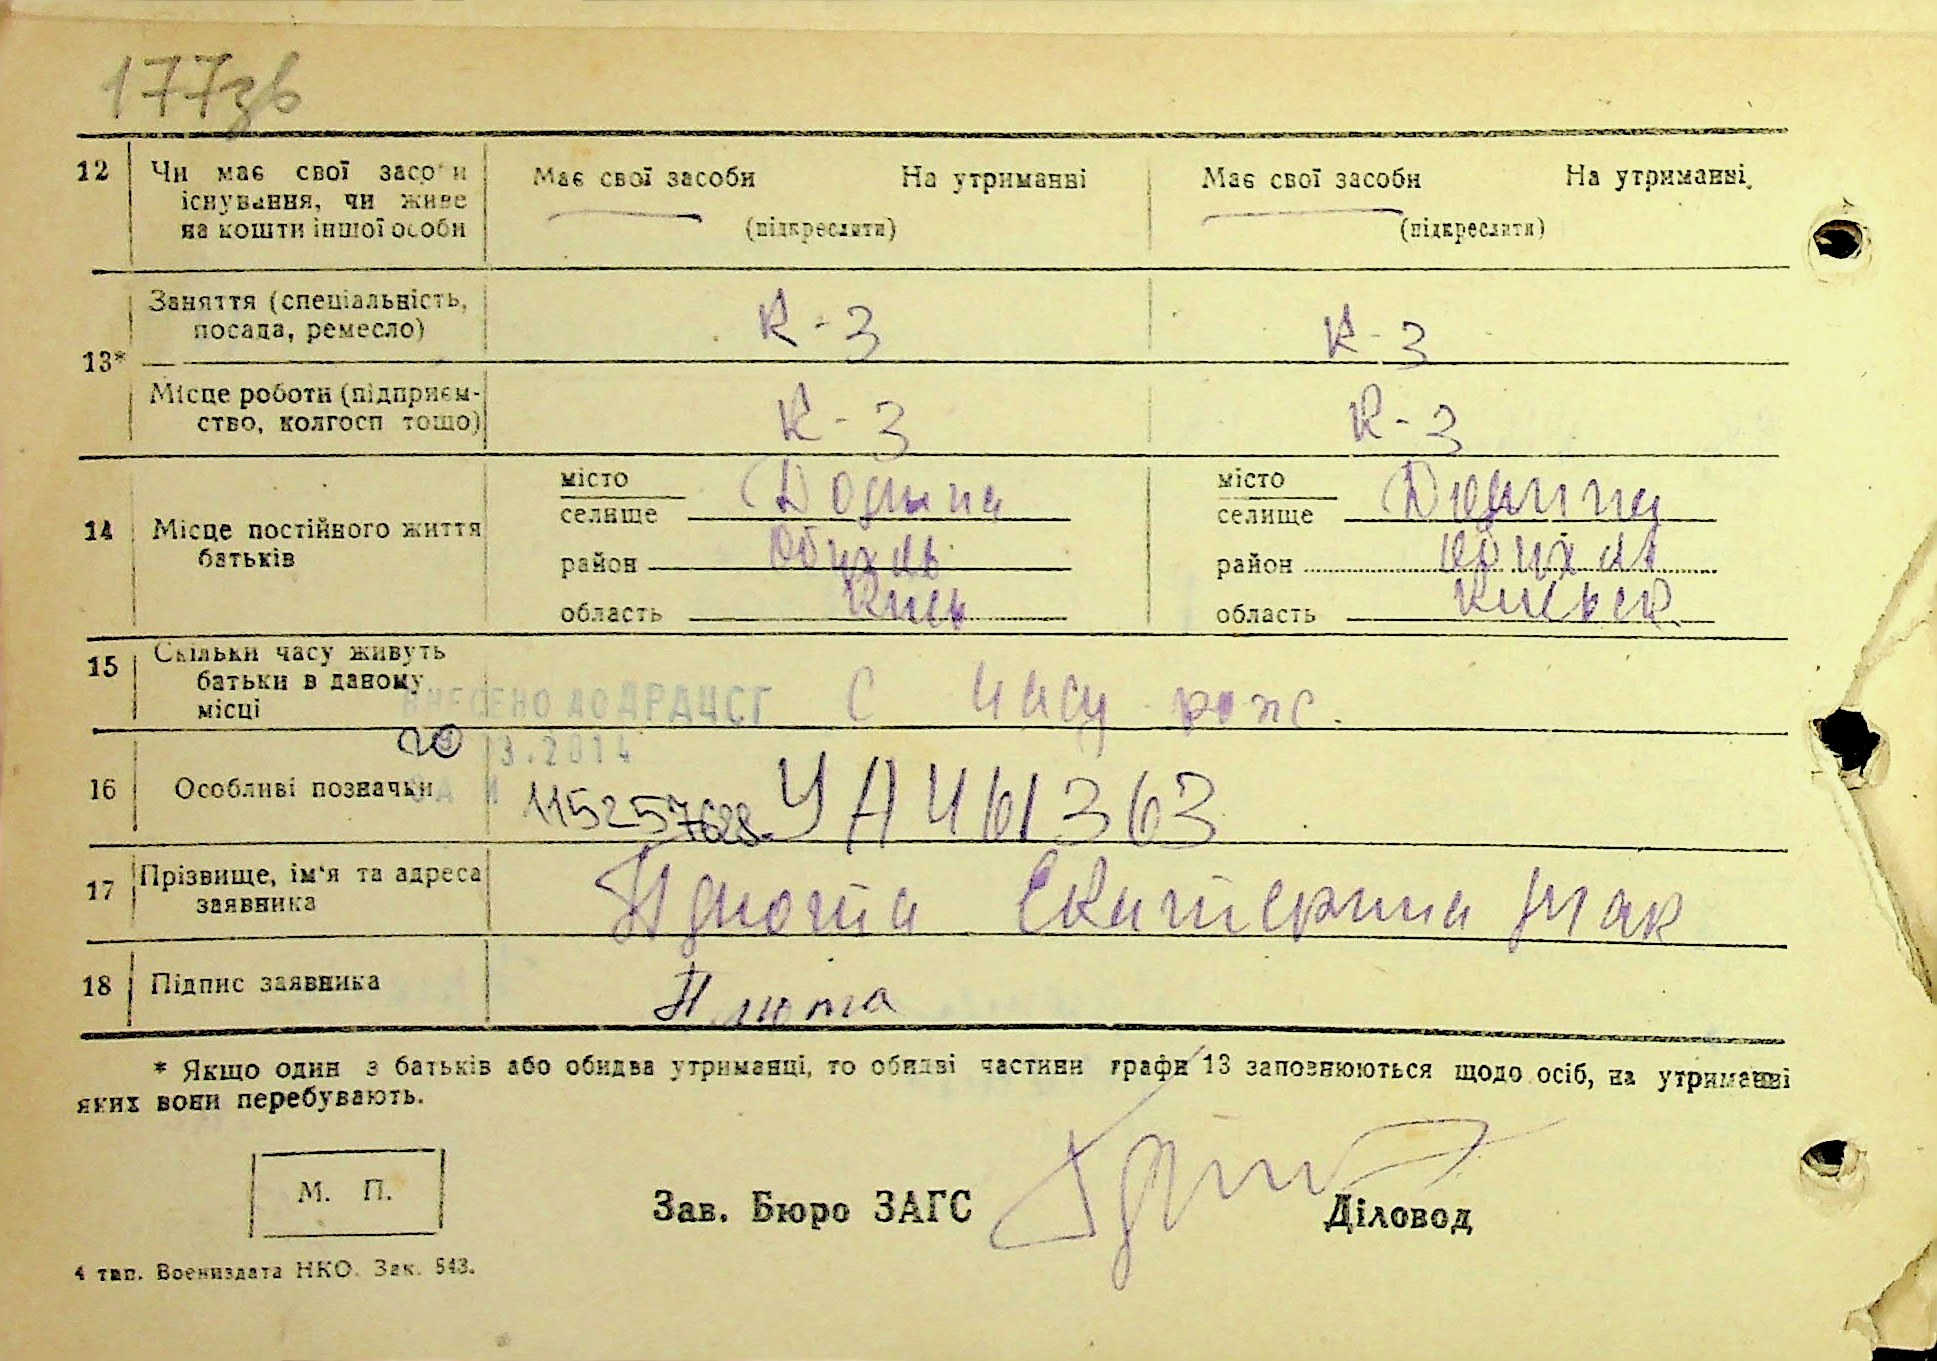 177зв
12 Чи має свої засоби Має свої засоби На утриманні Має свої засоби На утриманні
існування, чи живе
на кошти іншої особи (підкреслити) (підкреслити)
Заняття (спеціальність, К-З К-З
посада, ремесло)
13*
Місце роботи (підприєм- К-З К-З
ство, колгосп тощо)
місто місто
селище селище
14 Місце постійного життя
батьків район Обухів район
область Київ область
15 Скільки часу живуть
батьки в даному
місці С часу рож.
ВНЕСЕНО ДО ДРАЦСГ
3.2014
16 Особливі позначки 115257628 УА461363
17 Прізвище, ім'я та адреса Екатерина
заявника
18 Підпис заявника Плюта
* Якщо один з батьків або обидва утриманці, то обидві частини графи 13 заповнюються щодо осіб, на утриманні
яких вони перебувають.
М. П.
Зав. Бюро ЗАГС Діловод
4 тип. Воениздата НКО. Зак. 543.